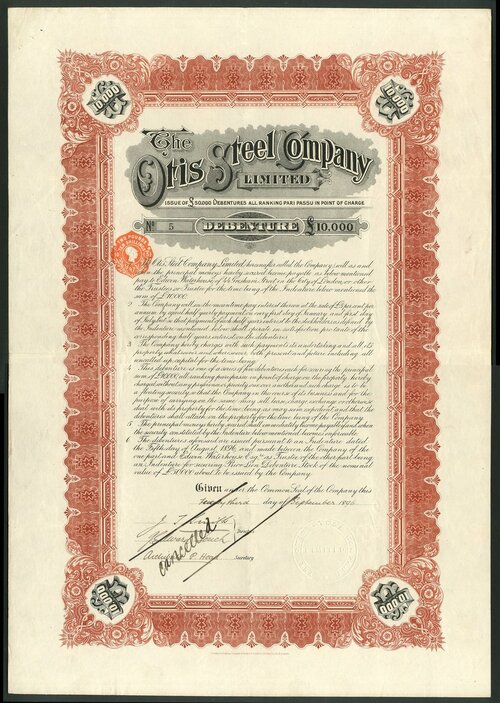 10.000
10.000
The
Otis Steel Company
LIMITED
ISSUE OF £50,000 DEBENTURES ALL RANKING PARI PASSU IN POINT OF CHARGE
No 5 DEBENTURE £10.000
The Otis Steel Company, Limited, hereinafter called the Company, will as and
when the principal moneys hereby secured become payable as below mentioned
pay to Edwin Waterhouse of 44 Gresham Street in the City of London, or other
the Trustees or Trustee for the time being of the Indenture below mentioned the
sum of £10,000
2 The Company will in the meantime pay interest thereon at the rate of per cent per
annum by equal half yearly payments on every first day of January, and first day
of July
the Indenture mentioned below shall pro tanto on satisfaction
corresponding half years interest on the debentures
3 The Company hereby charges with such payments its undertaking and all its
property whatsoever and wheresoever both present and future including all
uncalled up capital for the time being
4 This debenture is one of a series of five debentures each for securing the principal
sum of £10,000 all ranking pari passu in point of charge on the property hereby
charged without any preference or priority one over another and such charge is to be
a floating security so that the Company in the course of its business and for the
purpose of carrying on the same may sell lease charge exchange or otherwise
deal with its property for the time being as may seem expedient and that the
debentures shall attach on the property for the time being of the Company
5 The principal moneys hereby secured shall immediately become payable if and when
the security constituted by the Indenture below mentioned become enforceable
6 The debentures aforesaid are issued pursuant to an Indenture dated
the Fifth day of August 1896, and made between the Company of the
one part and Edwin Waterhouse Esqre as Trustee of the other part being
an Indenture for securing Prior Lien Debenture Stock of the nominal
value of £ about to be issued by the Company
Given under the Common Seal of the Company this
day of September 189
cancelled
Secretary
10.000
10.000